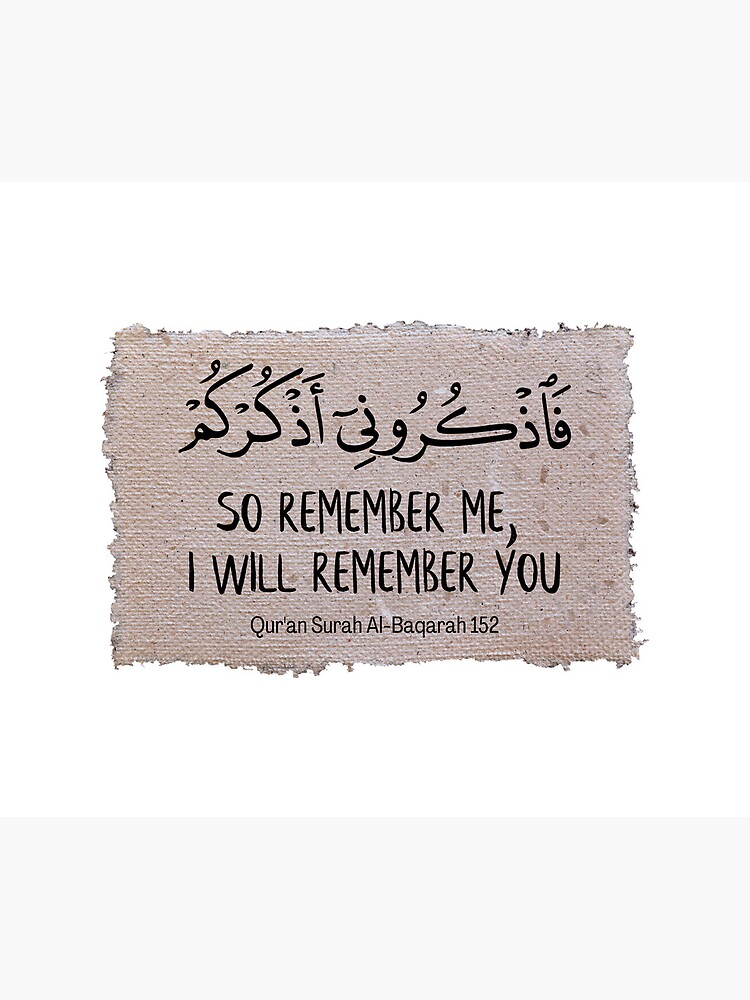 فَٱذْكُرُونِىٓ أَذْكُرْكُمْ
SO REMEMBER ME,
I WILL REMEMBER YOU
Qur'an Surah Al-Baqarah 152